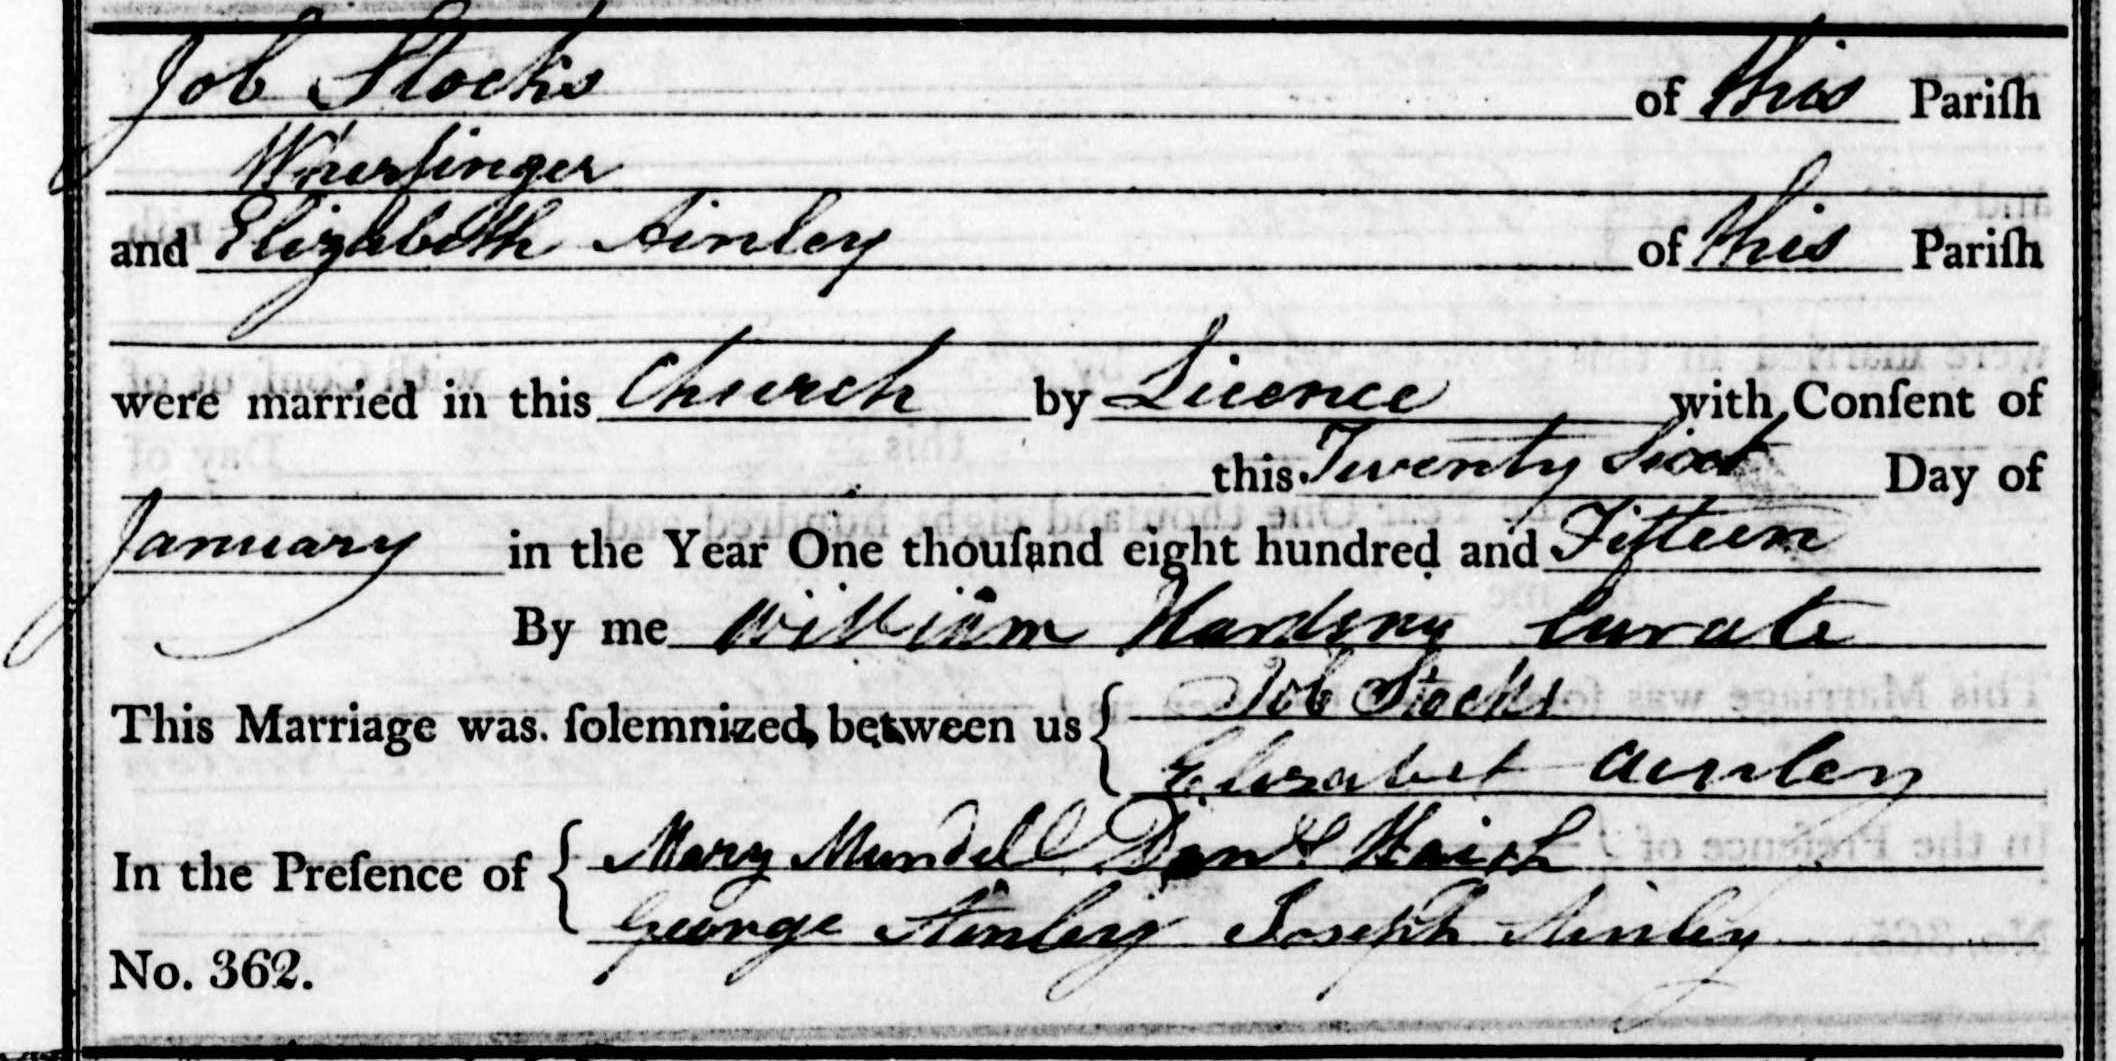 Job Stocks of this Pariſh
Wharfinger
and Elizabeth Ainley of this Pariſh
were married in this Church by Licence with Conſent of
this Twenty Sixt Day of
January in the Year One thouſand eight hundred and Fifteen
By me William Harding Curate
This Marriage was ſolemnized between us { Job Stocks
Elizabet Ainley
In the Preſence of { Mary Mundell Danl Haigh
George Ainley Joseph Ainley
No. 362.